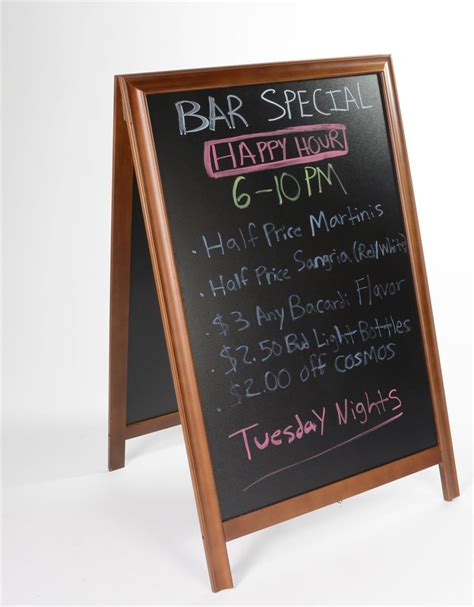 BAR SPECIAL
HAPPY HOUR
6-10PM
• Half Price Martinis
• Half Price Sangria (Red/White)
• $3 Any Bacardi Flavor
• $2.50 Bud Light Bottles
• $2.00 off COSMOS
Tuesday Nights